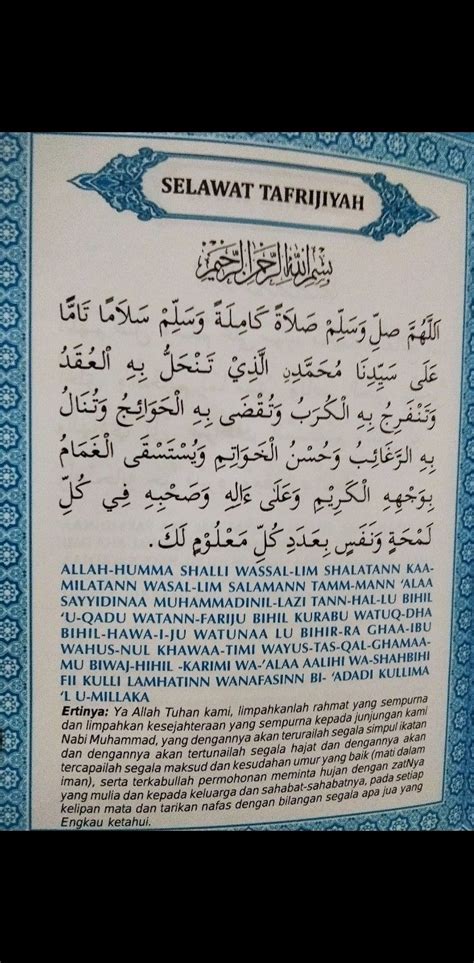 SELAWAT TAFRIJIYAH
بِسْمِ اللهِ الرَّحْمٰنِ الرَّحِيْمِ
اَللّٰهُمَّ صَلِّ وَسَلِّمْ صَلَاةً كَامِلَةً وَسَلِّمْ سَلَامًا تَامًّا
عَلَى سَيِّدِنَا مُحَمَّدِنِ الَّذِيْ تَنْحَلُّ بِهِ الْعُقَدُ
وَتَنْفَرِجُ بِهِ الْكُرَبُ وَتُقْضَى بِهِ الْحَوَائِجُ وَتُنَالُ
بِهِ الرَّغَائِبُ وَحُسْنُ الْخَوَاتِمِ وَيُسْتَسْقَى الْغَمَامُ
بِوَجْهِهِ الْكَرِيْمِ وَعَلَى ءَالِهِ وَصَحْبِهِ فِي كُلِّ
لَمْحَةٍ وَنَفَسٍ بِعَدَدِ كُلِّ مَعْلُوْمٍ لَكَ.
ALLAH-HUMMA SHALLI WASSAL-LIM SHALATANN KAA-
MILATANN WASAL-LIM SALAMANN TAMM-MANN ‘ALAA
SAYYIDINAA MUHAMMADINIL-LAZI TANN-HAL-LU BIHIL
‘U-QADU WATANN-FARIJU BIHIL KURABU WATUQ-DHA
BIHIL-HAWA-I-JU WATUNAA LU BIHIR-RA GHAA-IBU
WAHUS-NUL KHAWAA-TIMI WAYUS-TAS-QAL-GHAMAA-
MU BIWAJ-HIHIL -KARIMI WA-‘ALAA AALIHI WA-SHAHBIHI
FII KULLI LAMHATINN WANAFASINN BI- ‘ADADI KULLIMA
‘L U-MILLAKA
Ertinya: Ya Allah Tuhan kami, limpahkanlah rahmat yang sempurna
dan limpahkan kesejahteraan yang sempurna kepada junjungan kami
Nabi Muhammad, yang dengannya akan terurailah segala simpul ikatan
dan dengannya akan tertunailah segala hajat dan dengannya akan
tercapailah segala maksud dan kesudahan umur yang baik (mati dalam
iman), serta terkabullah permohonan meminta hujan dengan zatNya
yang mulia dan kepada keluarga dan sahabat-sahabatnya, pada setiap
kelipan mata dan tarikan nafas dengan bilangan segala apa jua yang
Engkau ketahui.